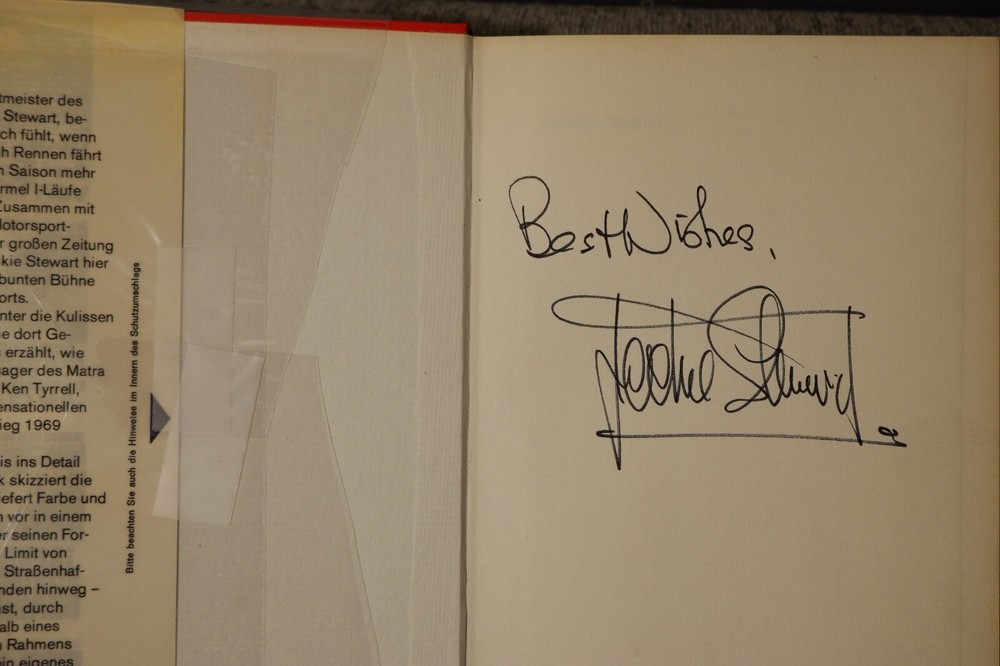 tmeister des
Stewart, be-
ch fühlt, wenn
h Rennen fährt
n Saison mehr
rmel I-Läufe
Zusammen mit
Motorsport-
r großen Zeitung
kie Stewart hier
bunten Bühne
orts.
nter die Kulissen
ie dort Ge-
s erzählt, wie
nager des Matra
Ken Tyrrell,
ensationellen
ieg 1969
is ins Detail
k skizziert die
efert Farbe und
n vor in einem
er seinen For-
Limit von
Straßenhaf-
nden hinweg –
st, durch
alb eines
n Rahmens
ein eigenes
Bitte beachten Sie auch die Hinweise im Innern des Schutzumschlags
Best Wishes,
Jackie Stewart